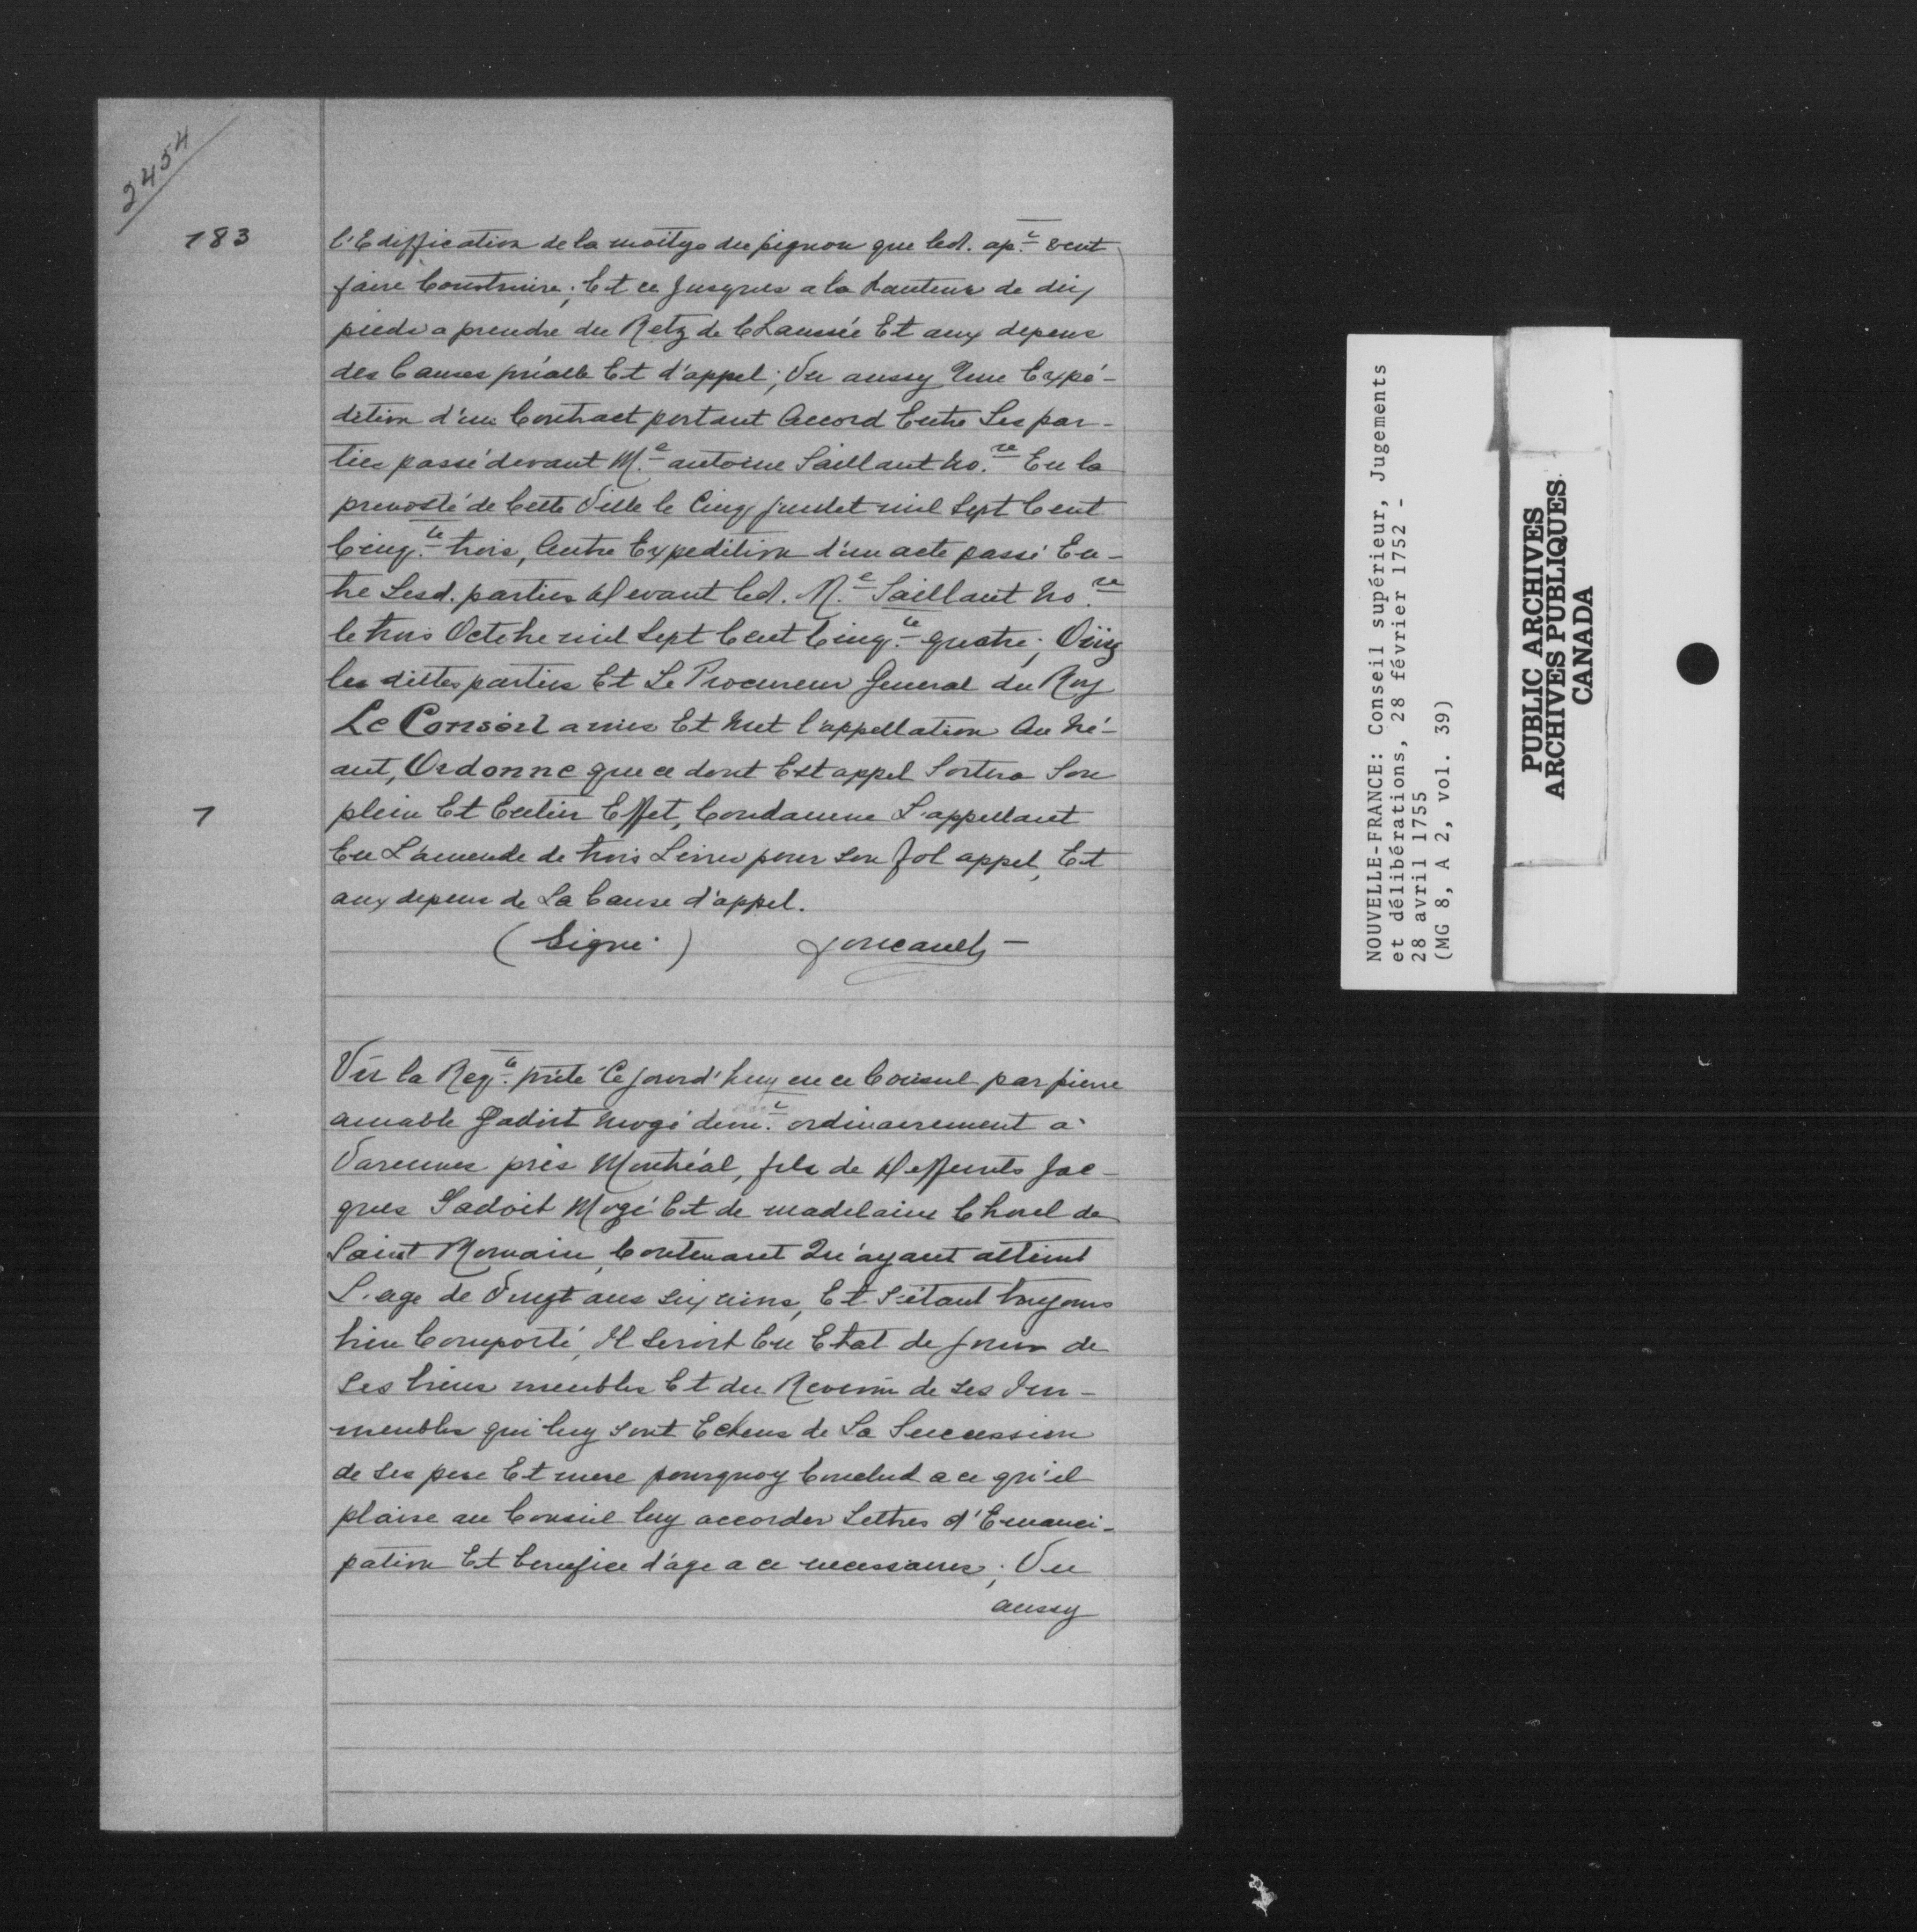 2454
183
l'Ediffication de la moitye du pignon que led. ap.t veut
faire Construire; Et ce Jusques a la hauteur de dix
pieds a prendre du Retz de Chaussée Et aux depens
des Causes pñalle Et d'appel; Vu aussy Une Expé-
dition d'un Contract portant Accord Entre Les par-
ties passé devant M.e antoine Saillant no.re En la
prevosté de Cette Ville le Cinq juillet mil Sept Cent
Cinq.te trois, Autre Expedition d'un acte passé En-
tre Lesd. parties Devant led. M.e Saillant no.re
le trois Octobre mil Sept Cent Cinq.te quatre; Oüis
les dittes parties Et Le Procureur General du Roy
Le Conseil a mis Et Met l'appellation Au Né-
ant, Ordonne que ce dont Est appel Sortira Son
7
plein Et Entier Effet, Condamne L'appellant
En L'amende de trois Livres pour son fol appel, Et
aux depens de La Cause d'appel.
(Signé) foucault —
Vû la Req.te pñtée Ce jourd'huy en ce Conseil par pierre
amable Gadoit Mogé dem.t ordinairement à
Varennes près Montréal, fils de Deffunts Jac-
ques Gadoit Mogé Et de madelaine Chorel de
Saint Romain, Contenant Qu'ayant atteint
L'age de Vingt ans , Et S'étant toujours
bien Comporté, Il seroit En Etat de jouir de
Ses biens meubles Et du Revenu de ses Im-
meubles qui luy sont Echeus de La Succession
de ses pere Et mere pourquoy Conclud a ce qu'il
plaise au Conseil luy accorder Lettres d'Emanci-
pation Et benefice d'age a ce necessaires; Vu
aussy
NOUVELLE-FRANCE: Conseil supérieur, Jugements
et délibérations, 28 février 1752 -
28 avril 1755
(MG 8, A 2, vol. 39)
PUBLIC ARCHIVES
ARCHIVES PUBLIQUES
CANADA